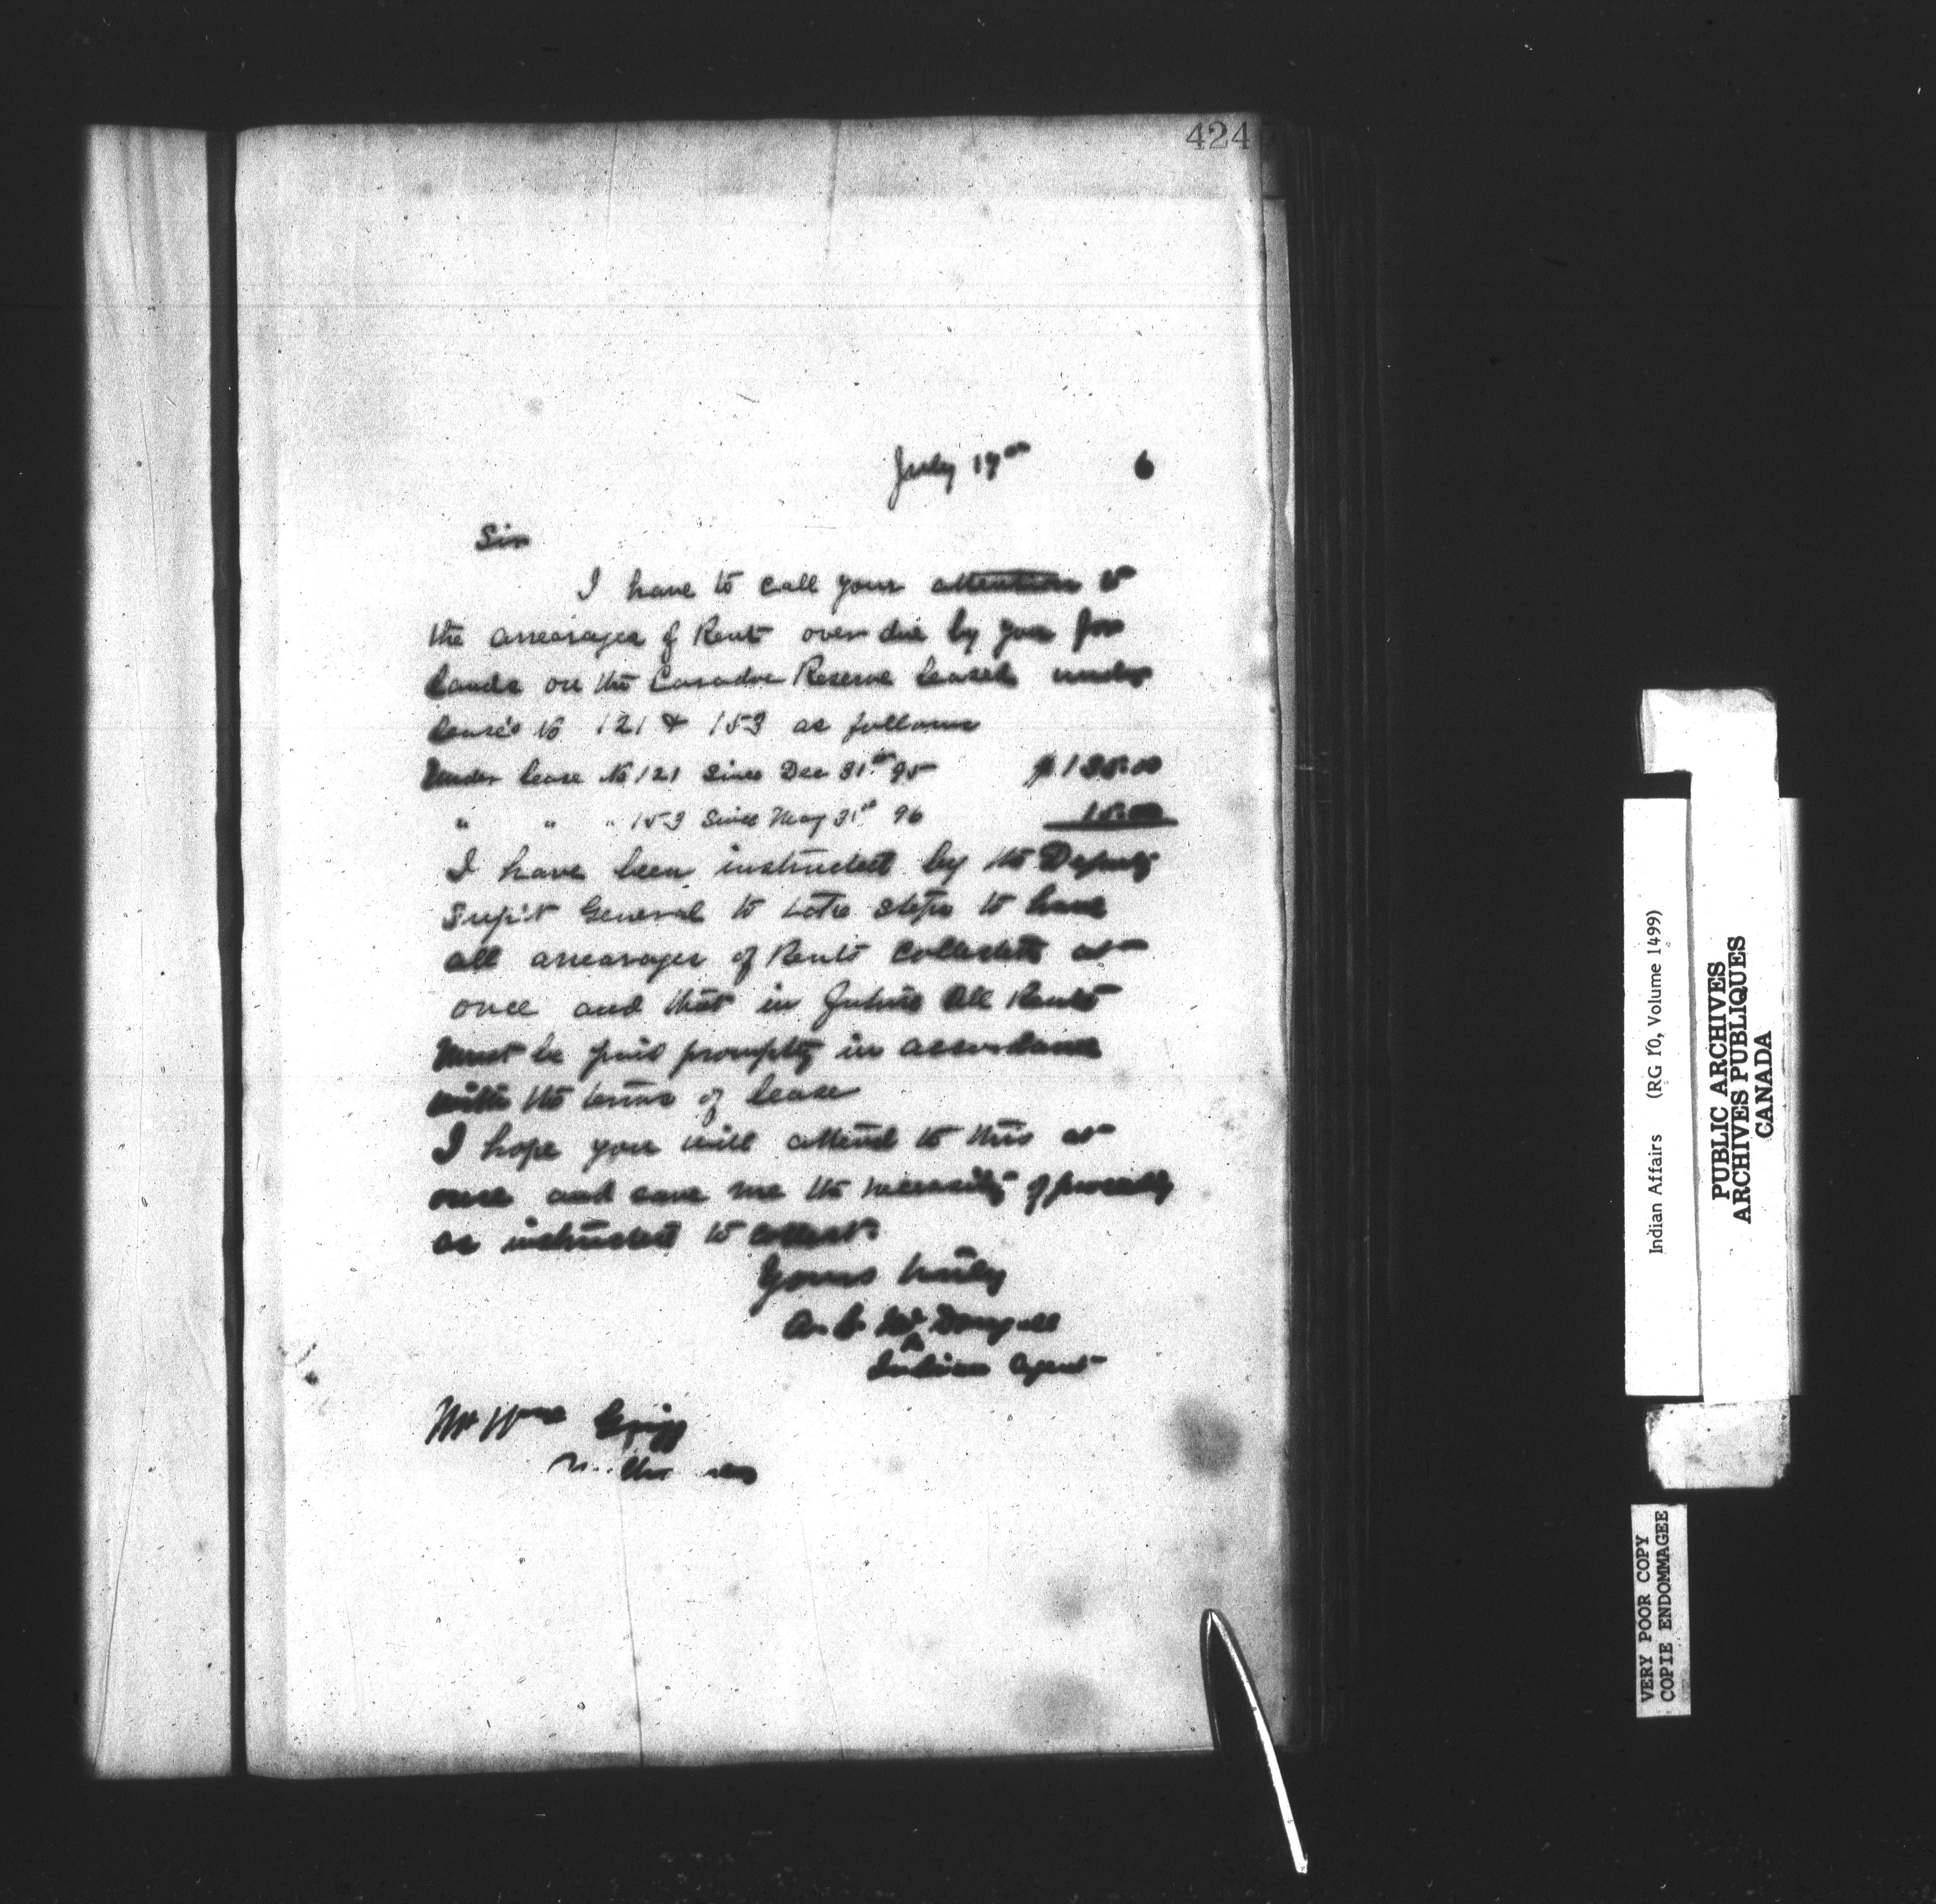 424
July 17th 6
Sir
I have to call your attention to
the arrearages of Rent over due by you for
lands on the Caradoc Reserve leased under
lease's No 121 & 153 as follows
Under lease No 121 since Dec 31st 95 $
" " " 153 since May 31st 96
I have been instructed by the Deputy
Sup't General to take steps to have
all arrearages of Rents collected at
once and that in future all Rents
must be paid promptly in accordance
with the terms of lease
I hope you will attend to this at
once and save me the necessity of
as instructed to collect.
Yours truly
McDougall
Indian Agent
Mr Wm
Indian Affairs (RG 10, Volume 1499)
PUBLIC ARCHIVES
ARCHIVES PUBLIQUES
CANADA
VERY POOR COPY
COPIE ENDOMMAGEE